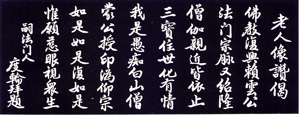 老人像讚偈
佛教復興賴雲公
法門宗脈又紹隆
僧伽親近皆依止
三寶住世化有情
我是愚痴白山僧
蒙公授印溈仰宗
如是如是復如是
惟願慈眼視眾生
嗣法門人
度輪拜題